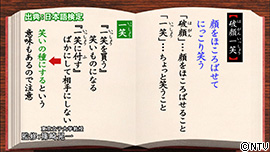 出典:日本語検定
【破顔一笑】
はがんいっしょう
顔をほころばせて
にっこり笑う
「破顔」…顔をほころばせること
「一笑」…ちょっと笑うこと
一笑
いっしょう
『一笑を買う』
笑いものになる
『一笑に付す』
ばかにして相手にしない
笑いの種にするという
意味もあるので注意
©NTV